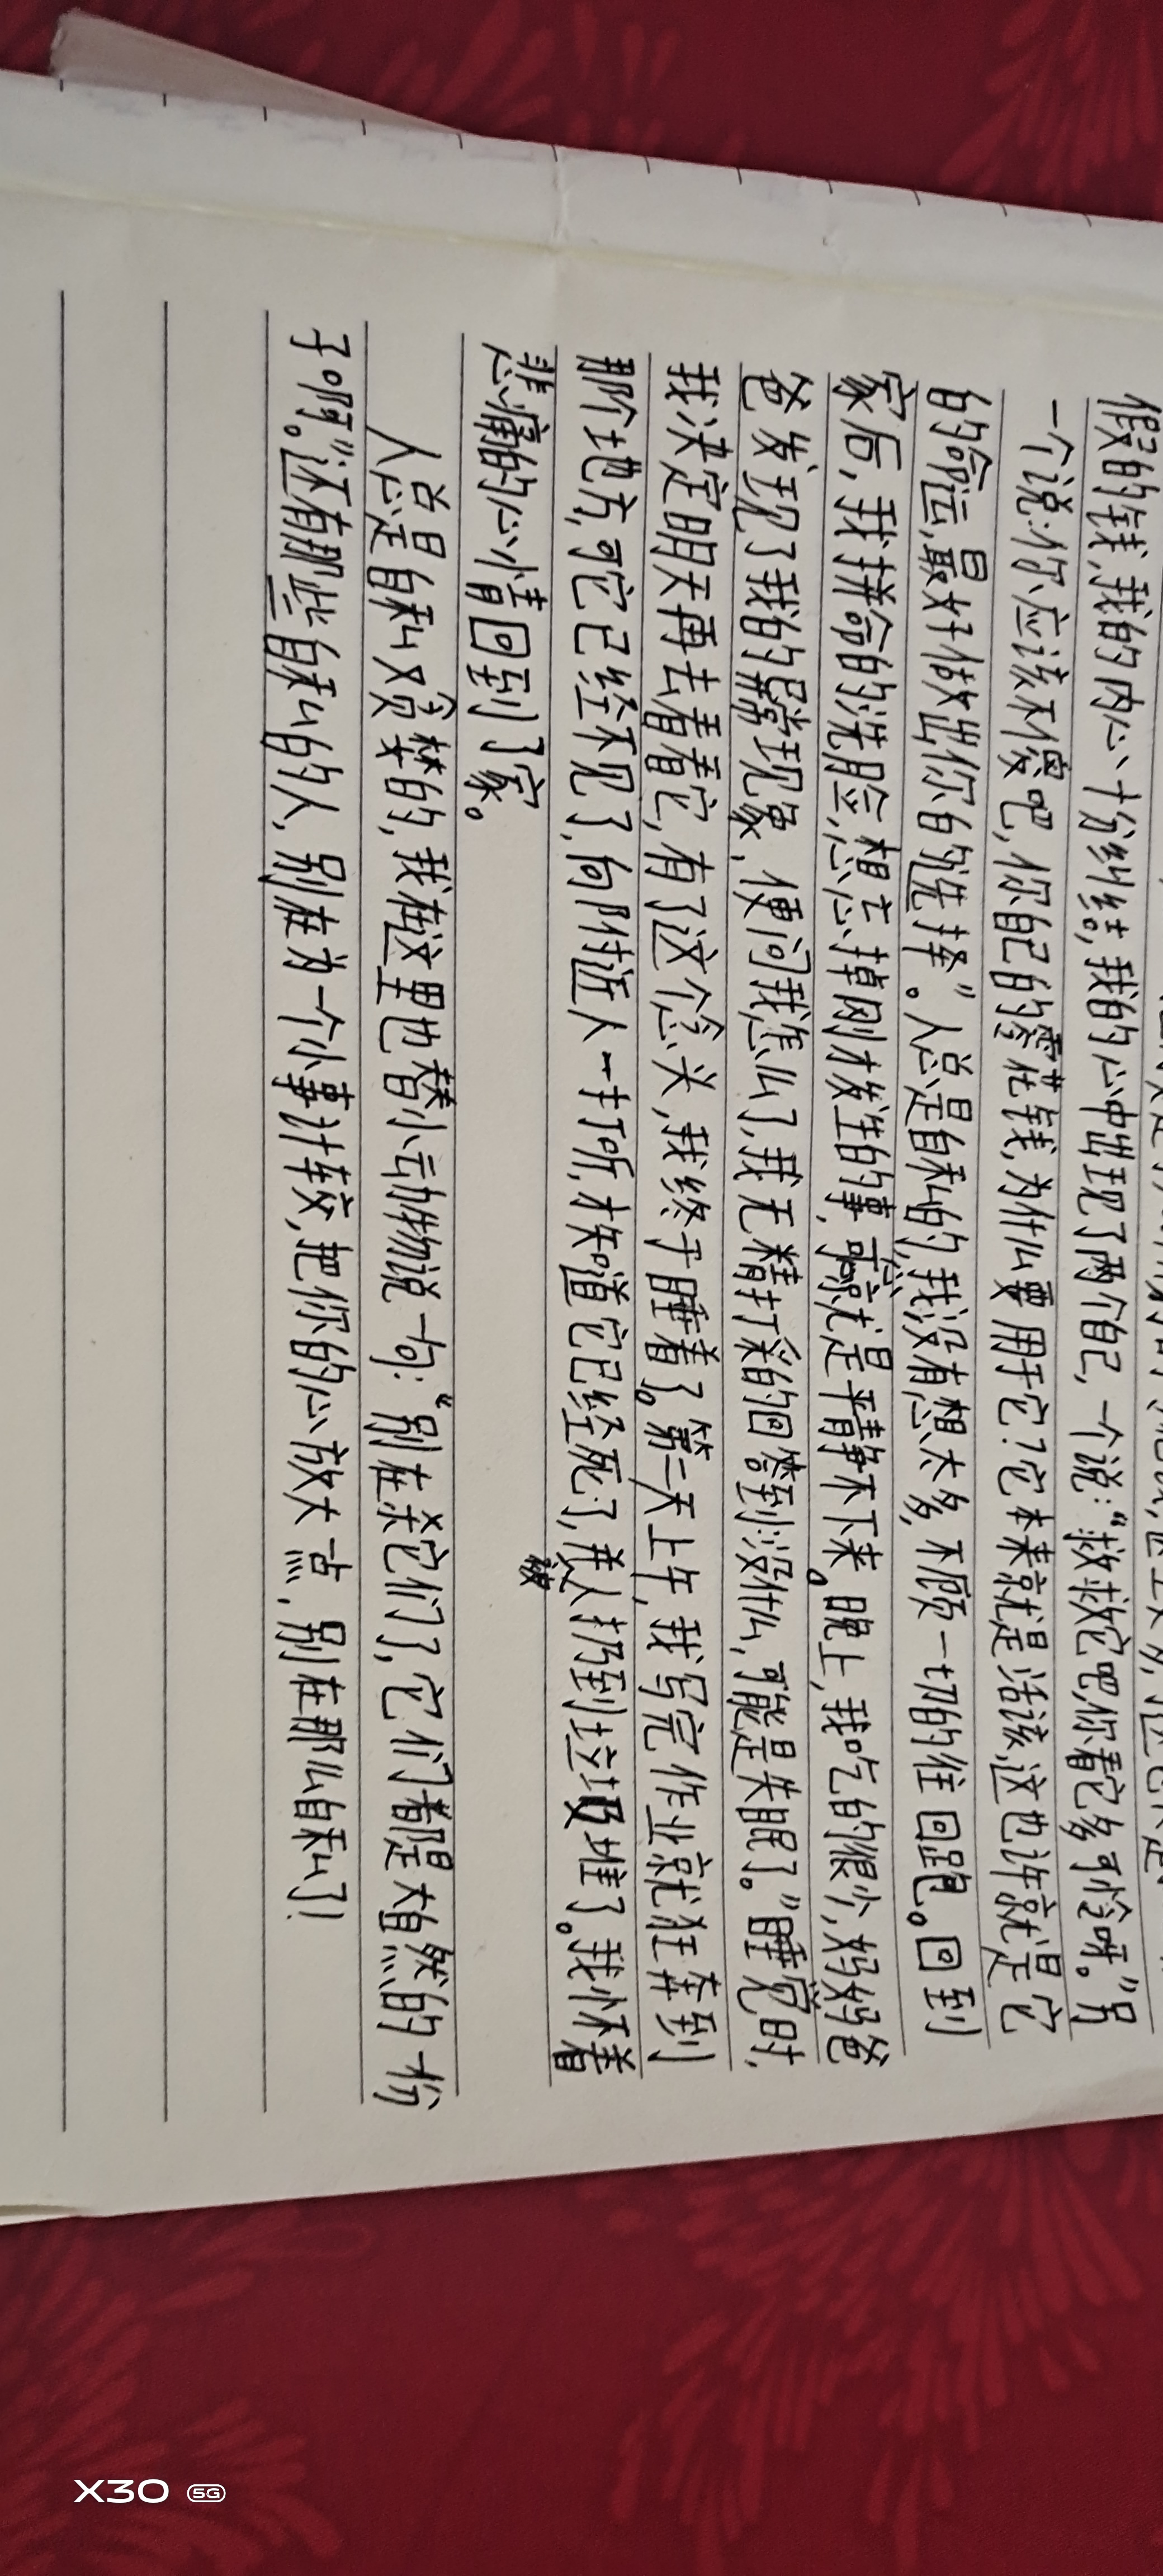 假的钱,我的内心十分纠结,我的心中出现了两个自己,一个说:“救救它吧,你看它多可怜呀。”另
一个说:你应该不傻吧,你自己的零花钱,为什么要用于它?它本来就是活该,这也许就是它
的命运,最好做出你的选择”。人总是自私的,我没有想太多,不顾一切的往回跑。回到
家后,我拼命的洗脸,想忘掉刚才发生的事,可心就是平静不下来。晚上,我吃的很少,妈妈爸
爸发现了我的异常现象,便问我怎么了,我无精打采的回答到:没什么,可能是失眠了。”睡觉时,
我决定明天再去看看它,有了这个念头,我终于睡着了。第二天上午,我写完作业就狂奔到
那个地方,可它已经不见了,向附近人一打听,才知道它已经死了,被人扔到垃圾堆了。我怀着
悲痛的心情回到了家。
人总是自私又贪婪的,我在这里也替小动物说一句:“别在杀它们了,它们都是大自然的一份
子啊”。还有那些自私的人,别在为一个小事计较,把你的心放大一点,别在那么自私了!
X30 5G